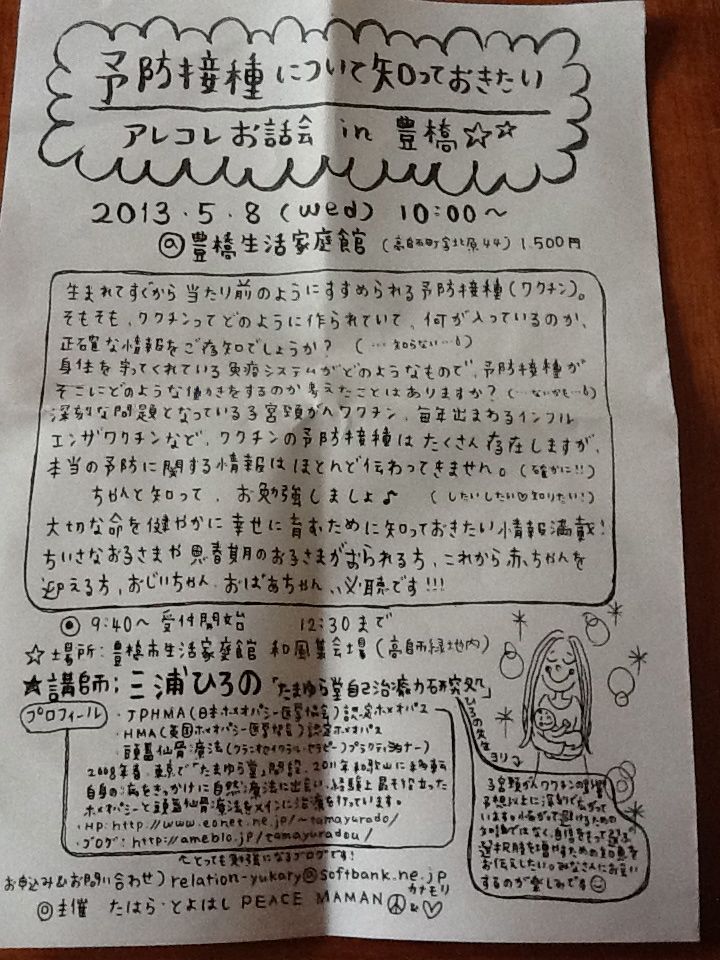 予防接種について知っておきたい
アレコレお話会 in 豊橋☆☆
2013.5.8 (wed) 10:00〜
@豊橋生活家庭館 (高師町字北原44) 1,500円
生まれてすぐから当たり前のようにすすめられる予防接種(ワクチン)。
そもそも、ワクチンってどのように作られていて、何が入っているのか、
正確な情報をご存知でしょうか? (…知らない…)
身体を守ってくれている免疫システムがどのようなもので、予防接種が
そこにどのような働きをするのか考えたことはありますか? (…ないかも…)
深刻な問題となっている子宮頸がんワクチン、毎年出まわるインフル
エンザワクチンなど、ワクチンの予防接種はたくさん存在しますが、
本当の予防に関する情報はほとんど伝わってきません。(確かに!!)
ちゃんと知って、お勉強しましょ♪ (したいしたい♡知りたい!)
大切な命を健やかに幸せに育むために知っておきたい情報満載!
ちいさなお子さまや思春期のお子さまがおられる方、これから赤ちゃんを
迎える方、おじいちゃん、おばあちゃん、必聴です!!!
◉ 9:40〜 受付開始 12:30まで
☆場所:豊橋市生活家庭館 和風集会場 (高師緑地内)
★講師:三浦ひろの「たまゆら堂自己治癒力研究処」
プロフィール
・JPHMA(日本ホメオパシー医学協会)認定ホメオパス
・HMA(英国ホメオパシー医学協会)認定ホメオパス
・頭蓋仙骨療法(クラニオセイクラル・セラピー)プラクティショナー)
2008年春、東京で「たまゆら堂」開設。2011年和歌山に移転
自身の病をきっかけに自然療法に出会い、経験上最も役立った
ホメオパシーと頭蓋仙骨療法をメインに治療を行っています。
・HP:http://www.eonet.ne.jp/~tamayurado/
・ブログ:http://ameblo.jp/tamayuradou/
〜とっても勉強になるブログです!
ひろの先生ヨリ
子宮頸がんワクチンの影響が
予想以上に深刻で広がって
います。怖がって避けるための
知識ではなく、自信をもって選ぶ
選択肢を増やすための知恵を
お伝えしたい。みなさんにお会い
するのが楽しみです☺
お申込み&お問い合わせ) relation-yukary@softbank.ne.jp
カナモリ
◎主催 たはら・とよはし PEACE MAMAN ☮&♡